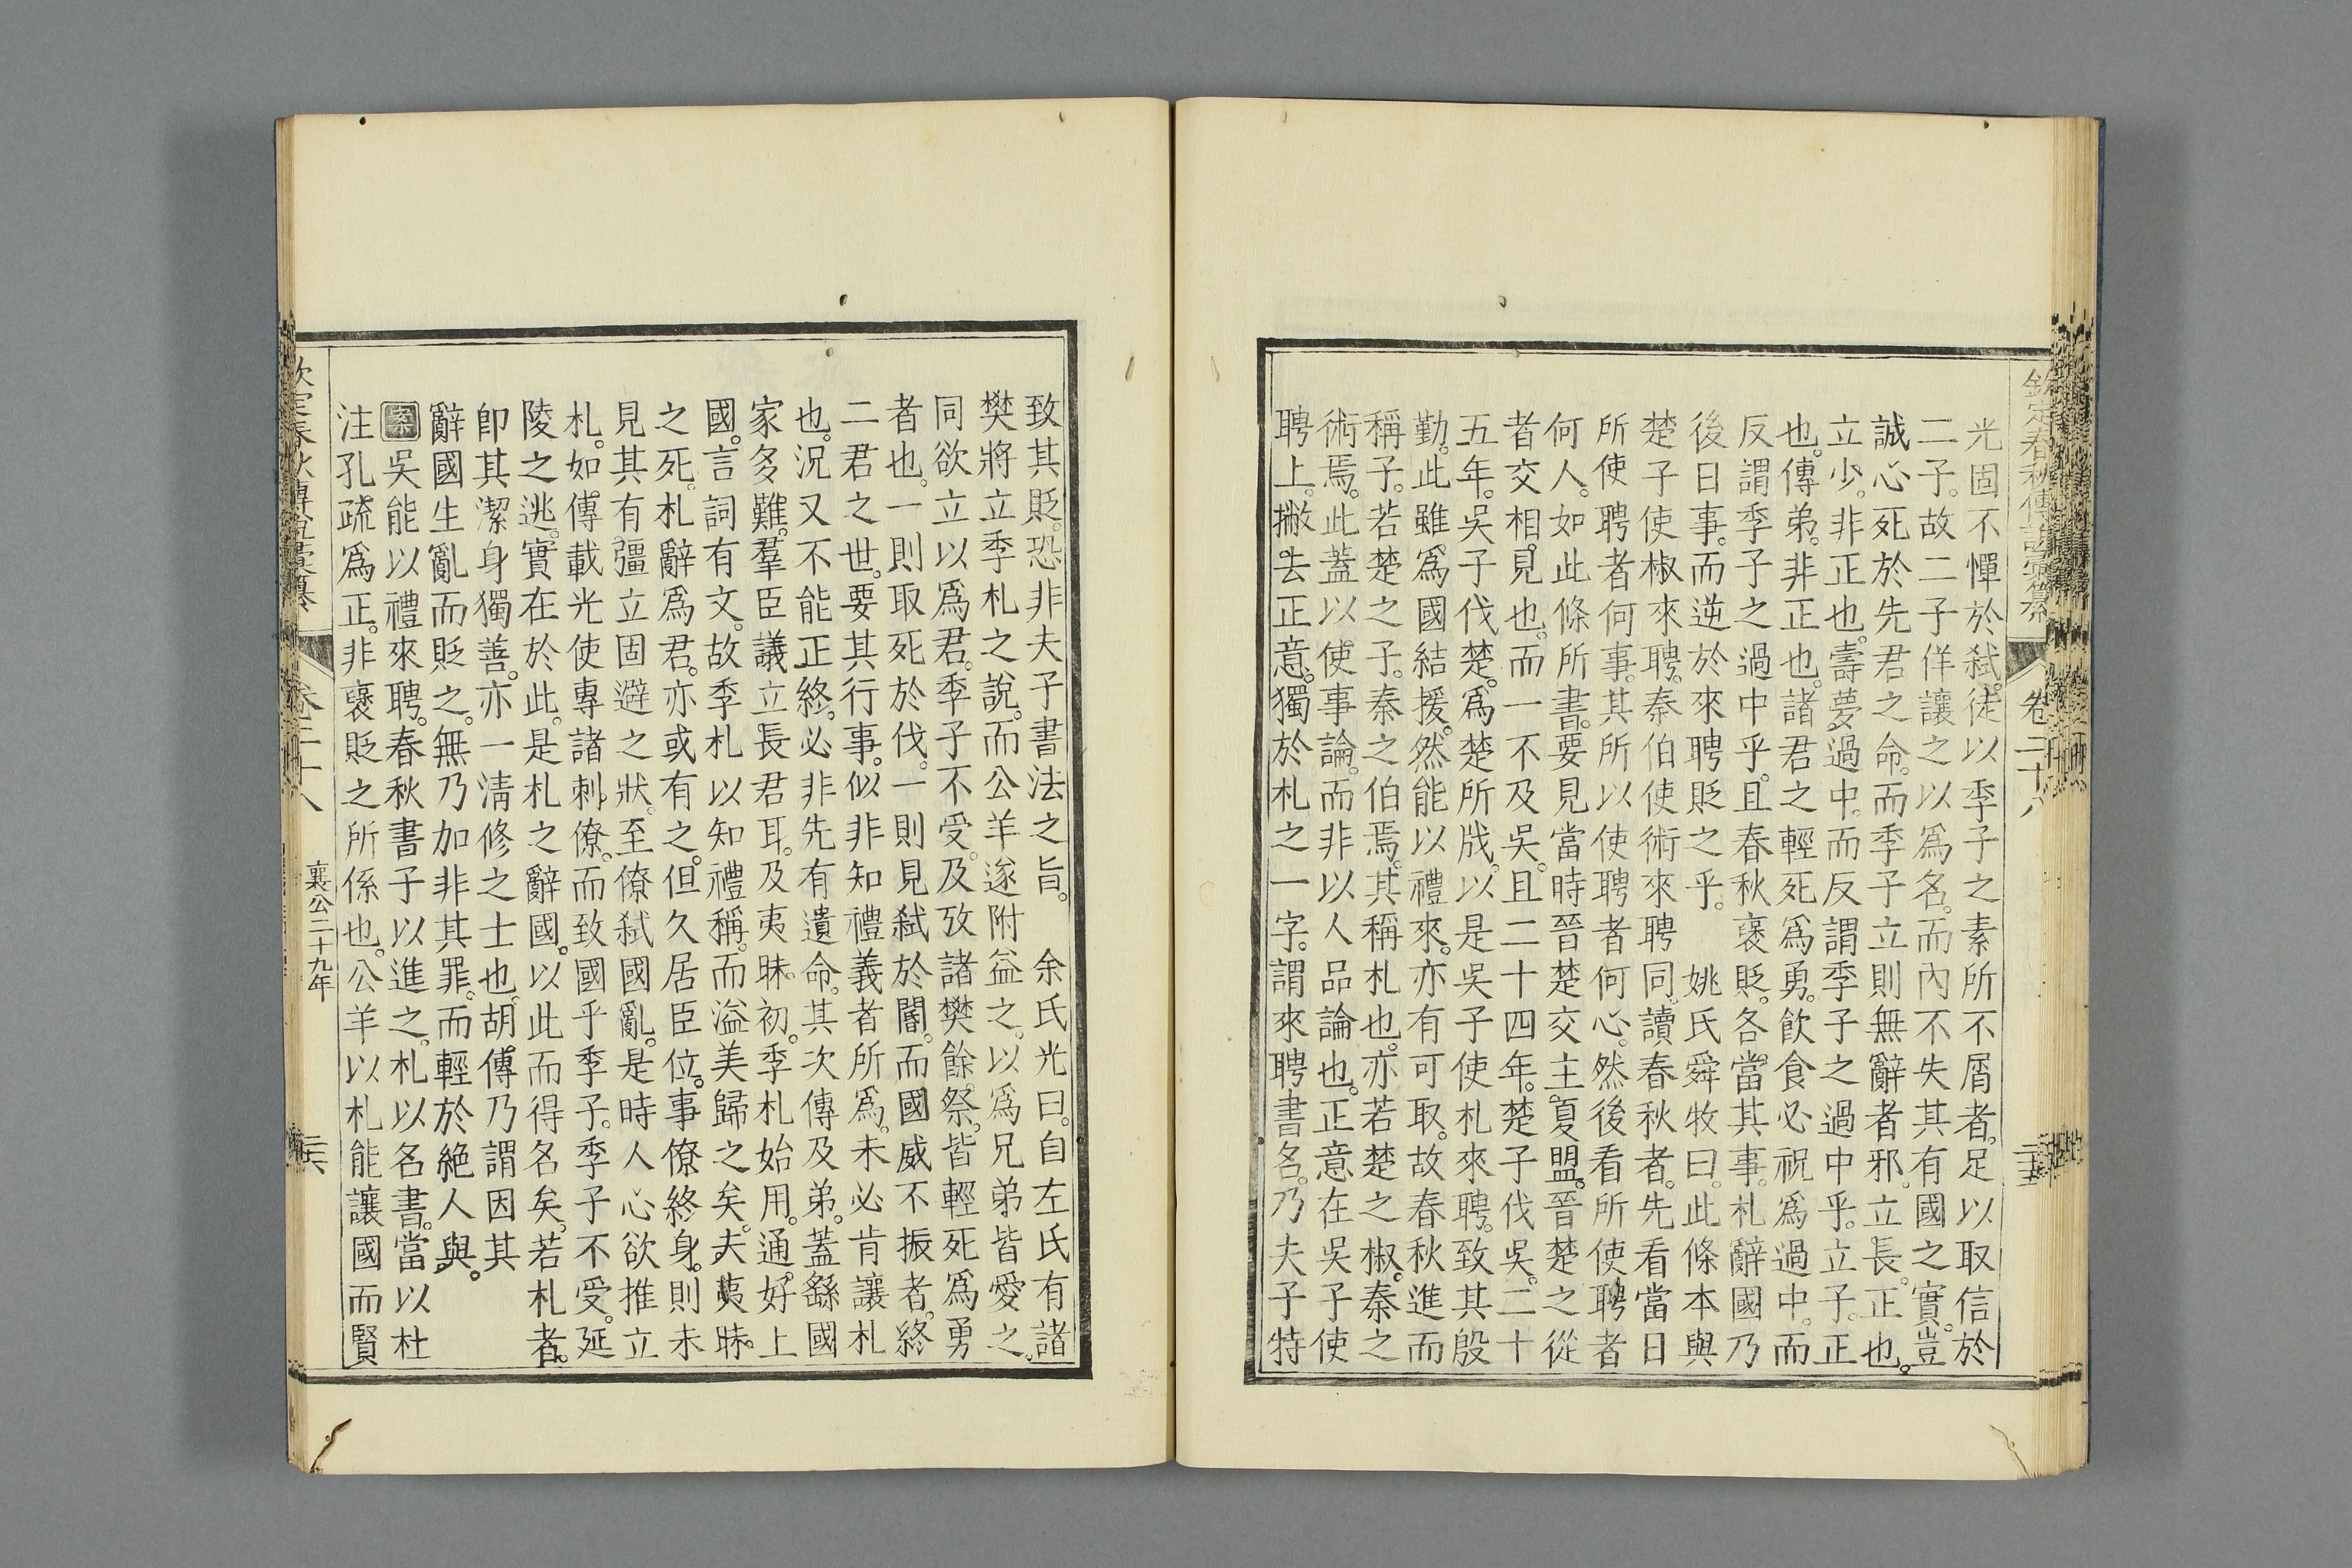 欽定春秋傳說彙纂 卷二十八
光固不憚於弒徒以季子之素所不屑者足以取信於
二子故二子佯讓之以爲名而內不失其有國之實豈
誠心死於先君之命而季子立則無辭者邪立長正也
立少非正也壽夢過中而反謂季子之過中乎立子正
也傳弟非正也諸君之輕死爲勇飮食必祝爲過中而
反謂季子之過中乎且春秋襃貶各當其事札辭國乃
後日事而逆於來聘貶之乎　姚氏舜牧曰此條本與
楚子使椒來聘秦伯使術來聘同讀春秋者先看當日
所使聘者何事其所以使聘者何心然後看所使聘者
何人如此條所書要見當時晉楚交主夏盟晉楚之從
者交相見也而一不及吳且二十四年楚子伐吳二十
五年吳子伐楚爲楚所戕以是吳子使札來聘致其殷
勤此雖爲國結援然能以禮來亦有可取故春秋進而
稱子若楚之子秦之伯焉其稱札也亦若楚之椒秦之
術焉此蓋以使事論而非以人品論也正意在吳子使
聘上撇去正意獨於札之一字謂來聘書名乃夫子特
致其貶恐非夫子書法之旨　余氏光曰自左氏有諸
樊將立季札之說而公羊遂附益之以爲兄弟皆愛之
同欲立以爲君季子不受及攷諸樊餘祭皆輕死爲勇
者也一則取死於伐一則見弒於閽而國威不振者終
二君之世要其行事似非知禮義者所爲未必肯讓札
也況又不能正終必非先有遺命其次傳及弟蓋繇國
家多難羣臣議立長君耳及夷昧初季札始用通好上
國言詞有文故季札以知禮稱而溢美歸之矣夫夷昧
之死札辭爲君亦或有之但久居臣位事僚終身則未
見其有彊立固避之狀至僚弒國亂是時人心欲推立
札如傳載光使專諸刺僚而致國乎季子季子不受延
陵之逃實在於此是札之辭國以此而得名矣若札者
卽其潔身獨善亦一淸修之士也胡傳乃謂因其
辭國生亂而貶之無乃加非其罪而輕於絶人與
案吳能以禮來聘春秋書子以進之札以名書當以杜
注孔疏爲正非襃貶之所係也公羊以札能讓國而賢
欽定春秋傳說彙纂 卷二十八 襄公二十九年